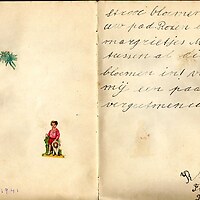 strooi bloemen
uw pad. Rozen
margrietjes
tussen al die
bloemen in't
mij een paa
vergeetmenie
1941